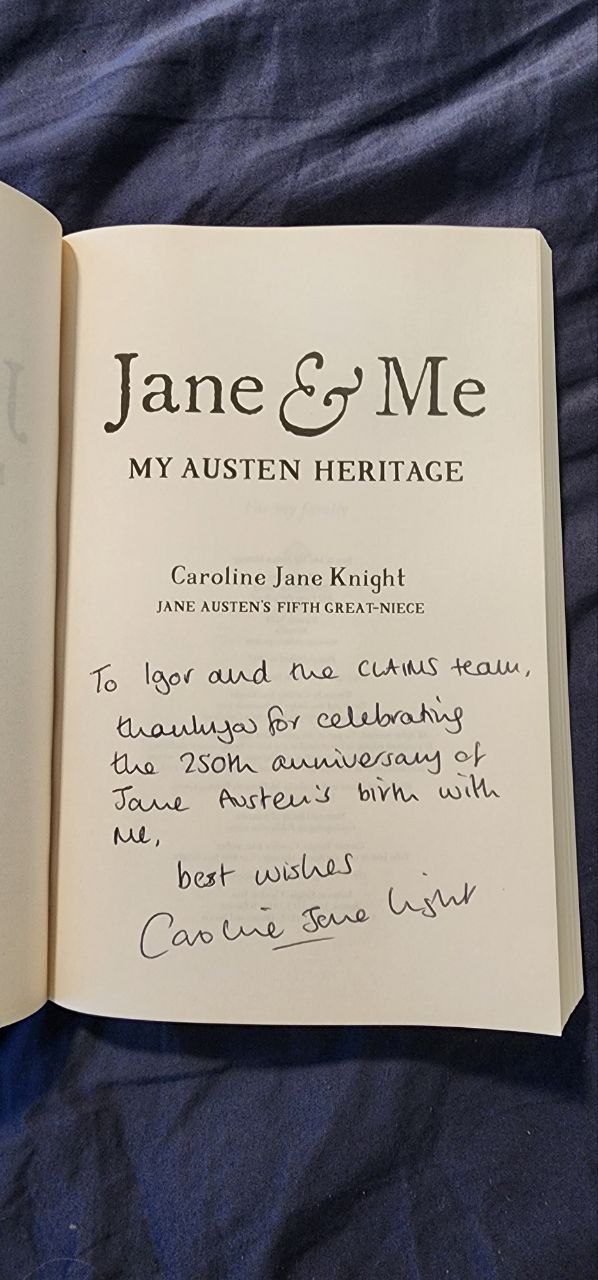 Jane & Me
MY AUSTEN HERITAGE
Caroline Jane Knight
JANE AUSTEN'S FIFTH GREAT-NIECE
To Igor and the CLAIMS team,
thankyou for celebrating
the 250th anniversary of
Jane Austen's birth with
me,
best wishes
Caroline Jane Knight